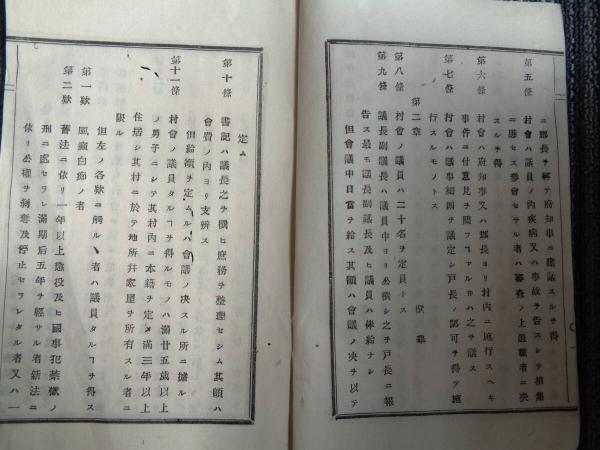 ニ郡長ヲ經テ府知事ニ建議スルヲ得
第五條 村會ハ議員ノ内疾病又ハ事故ヲ告スシテ招集
ニ應セス參會セサル者ハ審査ノ上退職者ニ决
スルヲ得
第六條 村會ハ府知事又ハ郡長ヨリ村内ニ施行スヘキ
事件ニ付意見ヲ問フコアルハ之ヲ議ス
第七條 村會ハ議事細則ヲ議定シ戸長ノ認可ヲ得テ施
行スルモノトス
第二章 撰擧
第八條 村會ノ議員ハ二十名ヲ定員トス
第九條 議長副議長ハ議員中ヨリ公撰シ之ヲ戸長ニ報
告ス最モ議長副議長及ヒ議員ハ俸給ナシ
但會議中日當ヲ給ス其額ハ會議ノ决ヲ以テ
定ム
第十條 書記ハ議長之ヲ撰ヒ庶務ヲ整理セシム其額ハ
會費ノ内ヨリ支辨ス
但給額ヲ定ムルハ會議ノ决スル所ニ據ル
第十一條 村會ノ議員タルヿヲ得ルモノハ滿廿五歳以上
ノ男子ニシテ其村内ニ本籍ヲ定メ滿三年以上
住居シ其村ニ於テ地所并家屋ヲ所有スル者ニ
限ル
但左ノ各欵ニ觸ルヽ者ハ議員タルヿヲ得ス
第一欵 風癲白痴ノ者
第二欵 舊法ニ依リ一年以上懲役及ヒ國事犯禁獄ノ
刑ニ處セラレ滿期后五年ヲ經サル者新法ニ
依リ公權ヲ剥奪及停止セラレタル者又ハ一